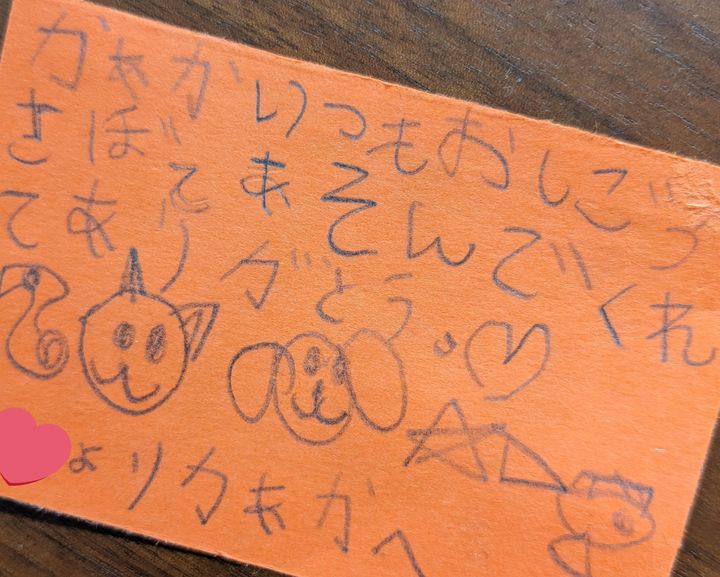 かあかいつもおしごと
さぼてあそんでくれ
てありがとう
よりかあかへ